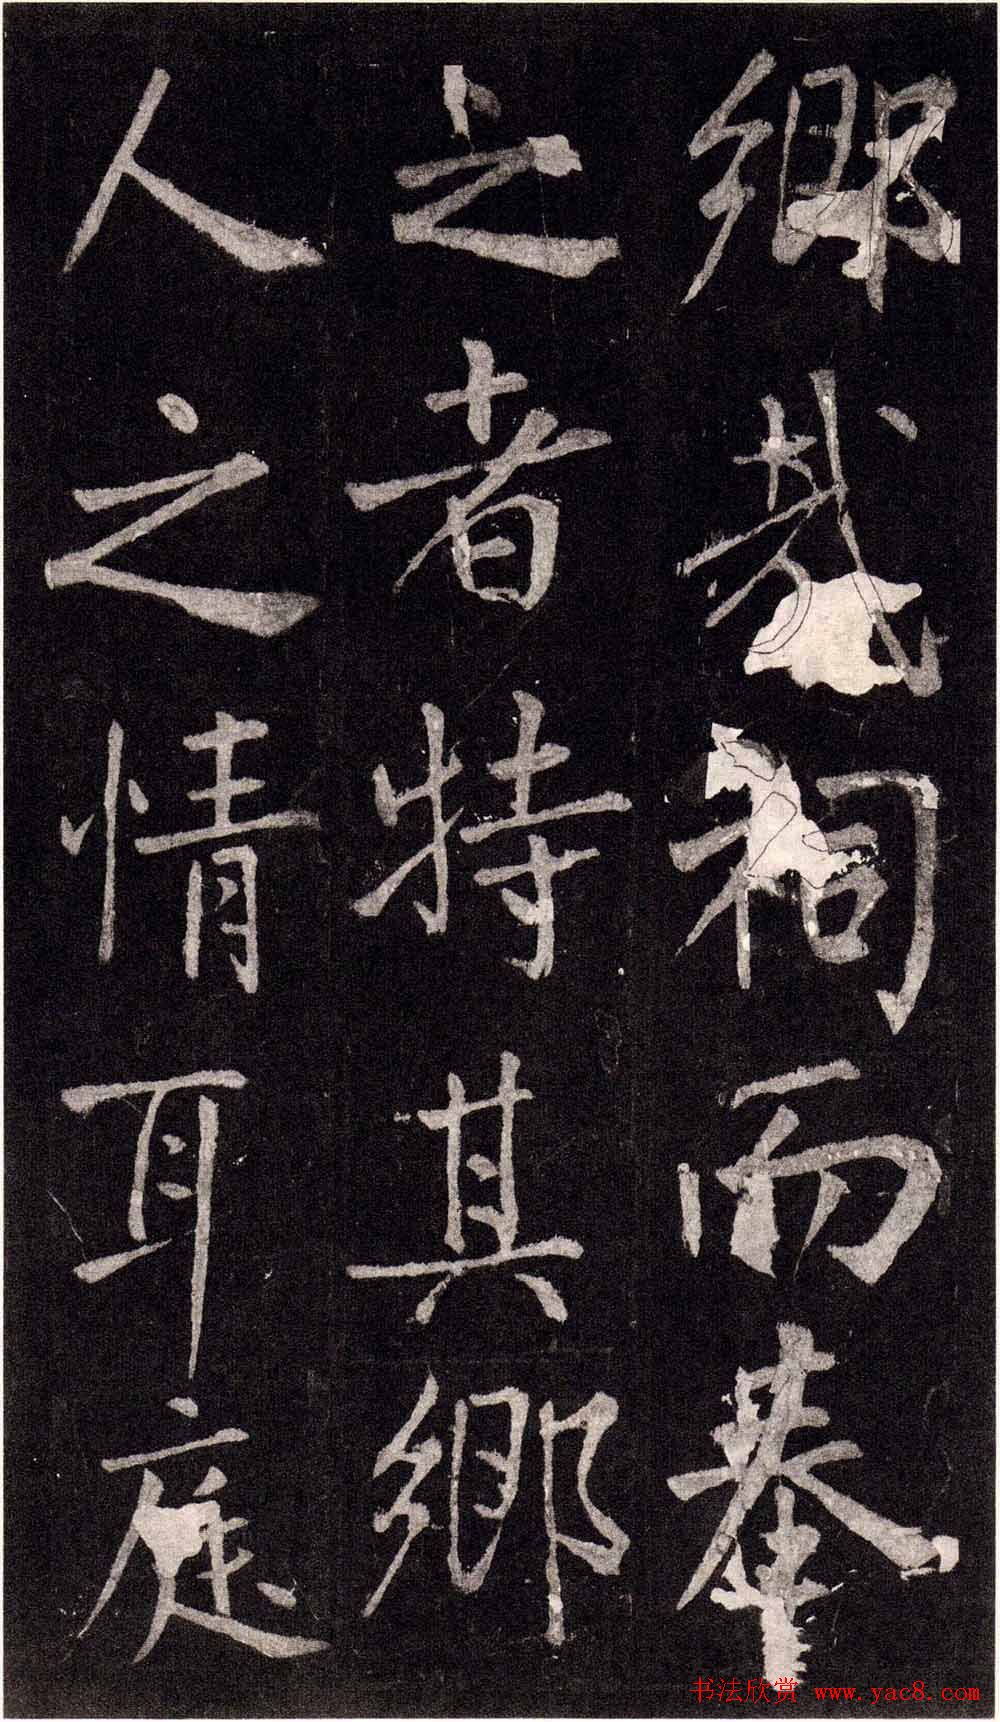 鄉哉祠而奉
之者特其鄉
人之情耳庭
书法欣赏 www.yac8.com